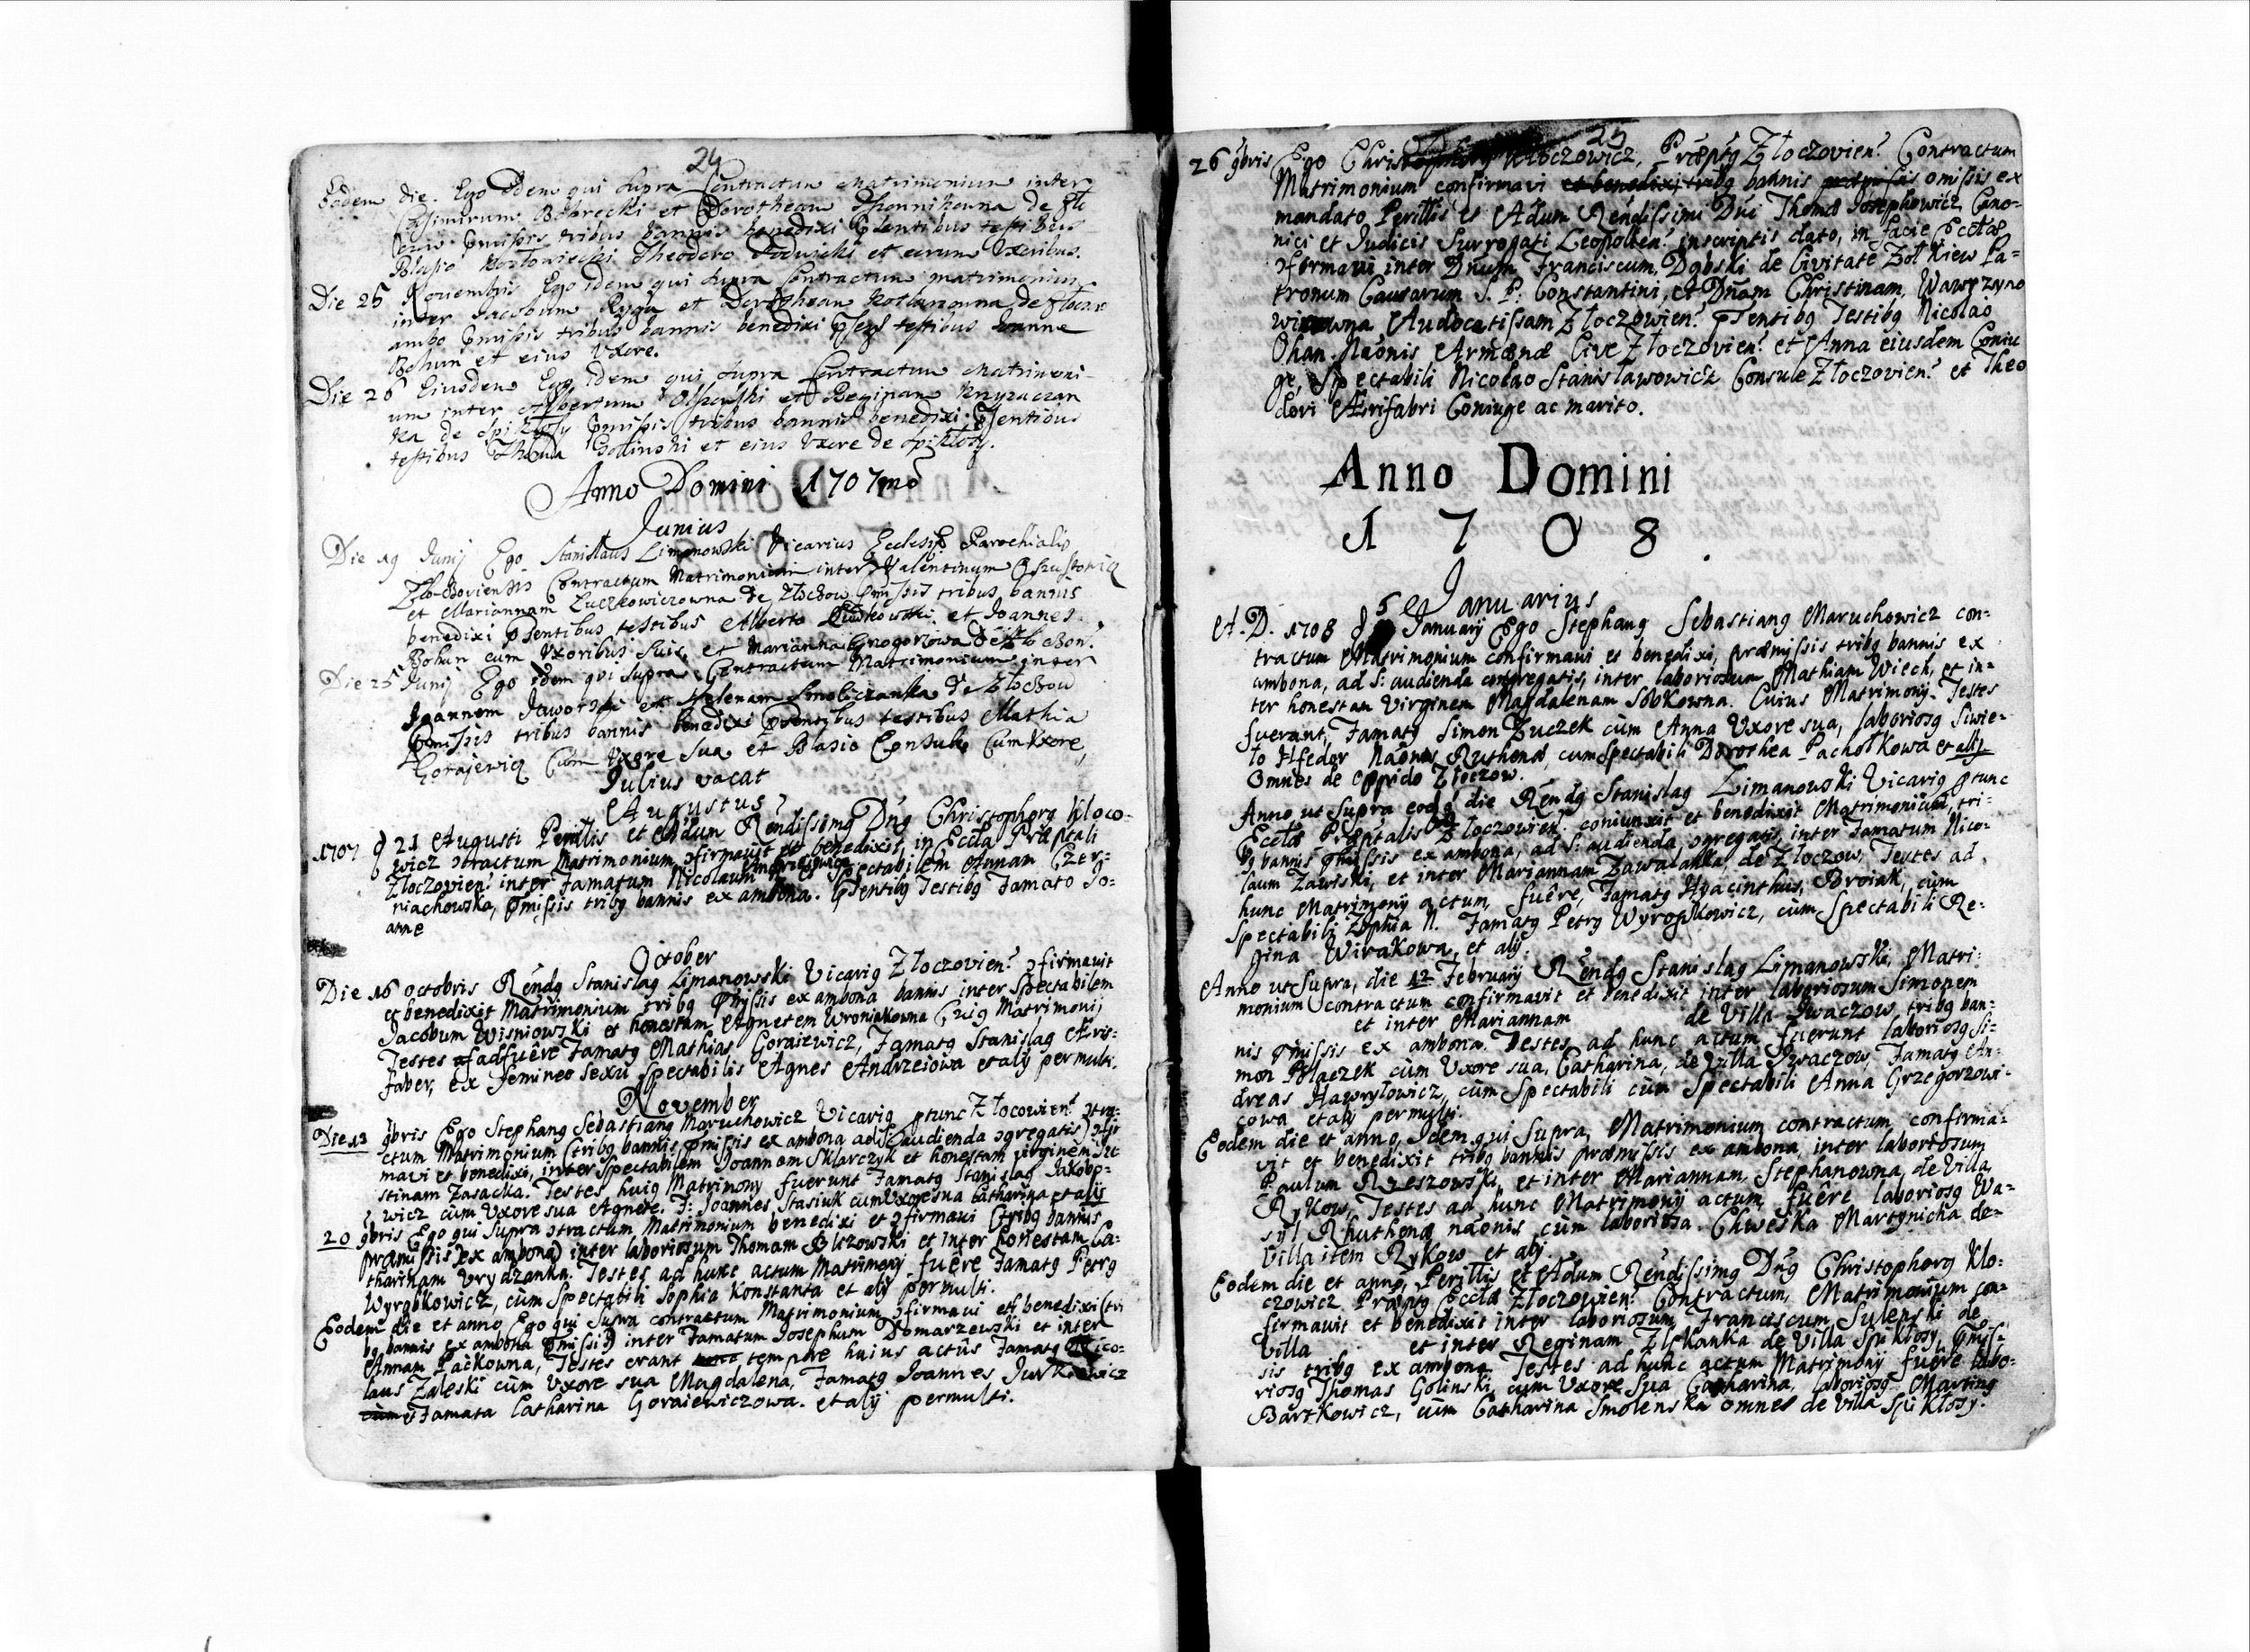 24
Eodem die. Ego Idem qui supra Contractum Matrimonium inter
Casimirum Bobrecki et Dorotheam de Zlo
tribus bannis benedixi pſentibus testibus
Blasio Theodoro et eorum Uxoribus.
Die 25 Nouembris Ego idem qui supra Contractum matrimonium
inter Jacobum et Dorotheam de
ambo pmissis tribus bannis benedixi testibus Joanne
Bohun et eius Uxore.
Die 26 Eiusdem Ego idem qui supra Contractum Matrimoni-
um inter Albertum Olszewski et Reginam
ka de Spikłosy pmissis tribus bannis benedixi pſentibus
testibus Thoma Golinski et eius Uxore de Spikłosy.
Anno Domini 1707mo
Junius
Die 19 Junij Ego Stanislaus Limanowski Vicarius Ecclesiæ Parochialis
Contractum Matrimonium inter Valentinum
et Mariannam Luczkowiczowna de Złoczow pmissis tribus bannis
benedixi pſentibus testibus Alberto et Joannes
Bohun cum Uxoribus suis, et Marianna Grogorlowa de
Die 25 Junij Ego idem qui supra Contractum Matrimonium inter
Joannem Jaworski et Helenam de Złoczow
pmissis tribus bannis benedixi pſentibus testibus Mathia
Gorajewicz Cum Uxore Sua et Blasio Consule Cum Uxore
Julius vacat
Augustus
1707 d 21 Augusti Perillis et Adum Rendissimg Dng Christophorg Kloco-
wicz ɔtractum Matrimonium ɔfirmauit et benedixit, in Eccla Præptali
Złoczovien? inter Famatum Nicolaum et Spectabilem Annam Czer-
niachowska, pmissis tribg bannis ex ambona. pſentibg Testibg Famato Jo-
anne
October
Die 16 octobris Rendg Stanislag Limanowski Vicarig Złoczovien? ɔfirmauit
et benedixit Matrimonium tribg pmissis ex ambona bannis inter Spectabilem
Jacobum Wisniowski et honestam Agnetem Wroniakowna Cuig Matrimonij
Testes adfuêre Famatg Mathias Goraiewicz, Famatg Stanislag Auri-
faber, ex femineo sexu Spectabilis Agnes Andrzeiowa et alÿ permulti.
November
Die 13 9bris Ego Stephang Sebastiang Maruchowicz Vicarig ptunc Złocowien? ɔtra-
ctum Matrimonium (tribg bannis pmissis ex ambona ad S. audienda ɔgregatis) ɔfir
mavi et benedixi, inter Spectabilem Joannem Sklarczyk et honestam virginem Iu-
stinam Zasacka. Testes huig Matrimony fuerunt Famatg Stanislag Jakobo-
wicz cum Uxore sua Agnete. F: Joannes Stasiuk cum Uxore sua Catharina et alÿ
20 9bris Ego qui supra ɔtractum Matrimonium benedixi et ɔfirmaui (tribg bannis
præmissis ex ambona) inter laboriosum Thomam Blszowski et inter honestam Ca-
tharinam Vrydzanka. Testes ad hunc actum Matrimony fuêre Famatg Petrg
Wyrobkowicz, cum Spectabili Sophia Konstanta et alÿ permulti.
Eodem die et anno Ego qui supra contractum Matrimonium ɔfirmaui et benedixi (tri
bg bannis ex ambona pmissis) inter Famatum Josephum Domarzewski et inter
Annam Packowna, Testes erant tempore huius actûs Famatg Nico-
laus Zaleski cum Uxore sua Magdalena, Famatg Joannes Jurkiewicz
et Famata Catharina Goraiewiczowa. et alÿ permulti.
25
26 9bris Ego Christophorg Kłoczowicz, Præptg Złoczovien? Contractum
Matrimonium confirmavi et benedixi tribg bannis omissis ex
mandato Perillis et Adum Rendissimi Dni Thomæ Josephowicz Cano-
nici et Judicis Surrogati Leopolien? inscriptis dato, in facie Ecclæ
ɔfirmaui inter Dnum Franciscum Dąbski de Civitate Zołkiew Pa-
tronum Causarum S. P: Constantini, et Dnam Christinam, Wawrzyno
wiczowna Złoczowien? pſentibg Testibg Nicolao
Ohan. Naonis Armænæ Cive Złoczovien? et Anna eiusdem Coniu
ge, Spectabili Nicolao Stanisławowicz Consule Złoczovien? et Theo
dori Ærifabri Coniuge ac marito.
Anno Domini
1 7 0 8.
Januarius
A. D. 1708 d 5 January Ego Stephang Sebastiang Maruchowicz con-
tractum Matrimonium confirmaui et benedixi, præmissis tribg bannis ex
ambona, ad S: audienda congregatis, inter laboriosum Mathiam Wiech, et in-
ter honestam Virginem Magdalenam Sobkowna. Cuius Matrimony Testes
fuerunt, Famatg Simon Zuczek cum Anna Uxore sua, laboriosg Siwie-
to Hfedor Naonis Ruthenæ, cum Spectabili Dorothea Pachołkowa et alÿ
Omnes de oppido Złoczow.
Anno ut supra eodē die Rendg Stanislag Limanowski Vicarig ptunc
Ecclæ Præptalis Złoczowien? coniunxit et benedixit Matrimonium, tri-
bg bannis pmissis ex ambona, ad S: audienda ɔgregatis, inter Famatum Nico-
laum Zawiski, et inter Mariannam Zawalanka, de Złoczow, Testes ad
hunc Matrimony actum, fuêre, Famatg Hyacinthus, Broiak, cum
Spectabili Zophia N. Famatg Petrg Wyropkowicz, cum Spectabili Re-
gina Wirakowa, et alÿ.
Anno ut Supra, die 12 February Rendg Stanislag Limanowski, Matri-
monium contractum confirmavit et benedixit inter laboriosum Simonem
et inter Mariannam de Villa Jwaczow, tribg ban-
nis pmissis ex ambona. Testes ad hunc actum fuerunt laboriosg Si-
mon Błaczek cum Uxore sua, Catharina, de Villa Jwaczow, Famatg An-
dreas Hawryłowicz, cum Spectabili cum Spectabili Anna Grzegorzowi-
cowa et alÿ permulti.
Eodem die et anno, Idem qui Supra, Matrimonium contractum confirma-
vit et benedixit tribg bannis præmissis ex ambona, inter laboriosum
Paulum Rzeszowski, et inter Mariannam, Stephanowna, de Villa
Rykow, Testes ad hunc Matrimony actum, fuêre laboriosg Wa-
syl Rhuthenæ naonis, cum laboriosa. Chweska Martynicha de
Villa item Rykow et alÿ.
Eodem die et anno, Perillis et Adum Rendissimg Dng Christophorg Klo-
czowicz Præptg Ecclæ Złoczowien? Contractum, Matrimonium con-
firmavit et benedixit inter laboriosum, Franciscum Sylenski de
Villa et inter Reginam Zlskanka de Villa Spikłosy, pmiss-
sis tribg ex ambona. Testes ad hunc actum Matrimony fuêre labo-
riosg Thomas Golinski, cum Uxore Sua Catharina, laboriosg Marting
Bartkowicz, cum Catharina Smolenska omnes de Villa Spikłosy.